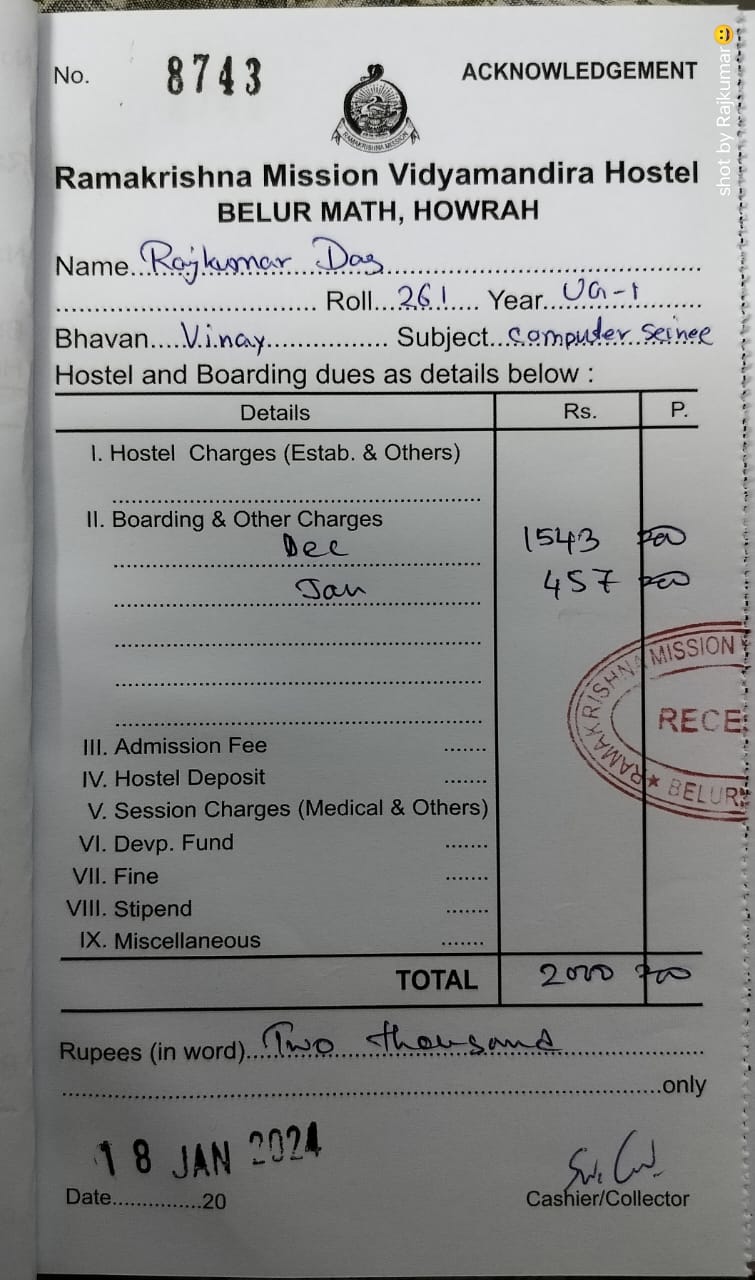 No. 8743
ACKNOWLEDGEMENT
shot by Rajkumar🙂
RAMAKRISHNA MISSION
Ramakrishna Mission Vidyamandira Hostel
BELUR MATH, HOWRAH
Name...Rajkumar Das
Roll...261.... Year...UG-1
Bhavan....Vinay............... Subject...computer seinee
Hostel and Boarding dues as details below :
Details Rs. P.
I. Hostel Charges (Estab. & Others)
II. Boarding & Other Charges
Dec 1543 00
Jan 457 00
RAMAKRISHNA MISSION
RECE
★ BELUR
III. Admission Fee .......
IV. Hostel Deposit .......
V. Session Charges (Medical & Others)
VI. Devp. Fund .......
VII. Fine .......
VIII. Stipend .......
IX. Miscellaneous .......
TOTAL 2000 00
Rupees (in word)....Two thousand
only
18 JAN 2024
Date...............20
Cashier/Collector